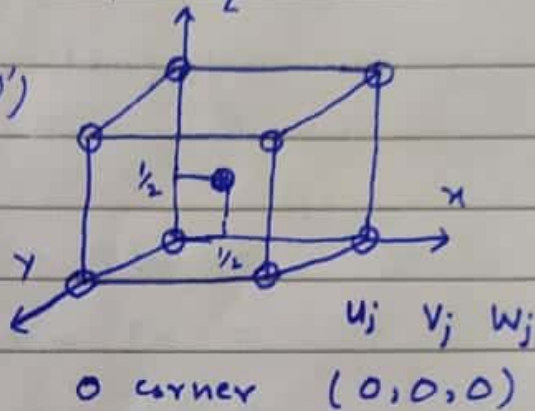 z
')
1/2
x
1/2
y
uj vj wj
o corner (0,0,0)